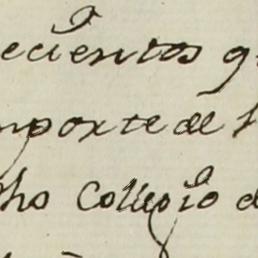 ecientos q
mporte de l
cho Colegio d